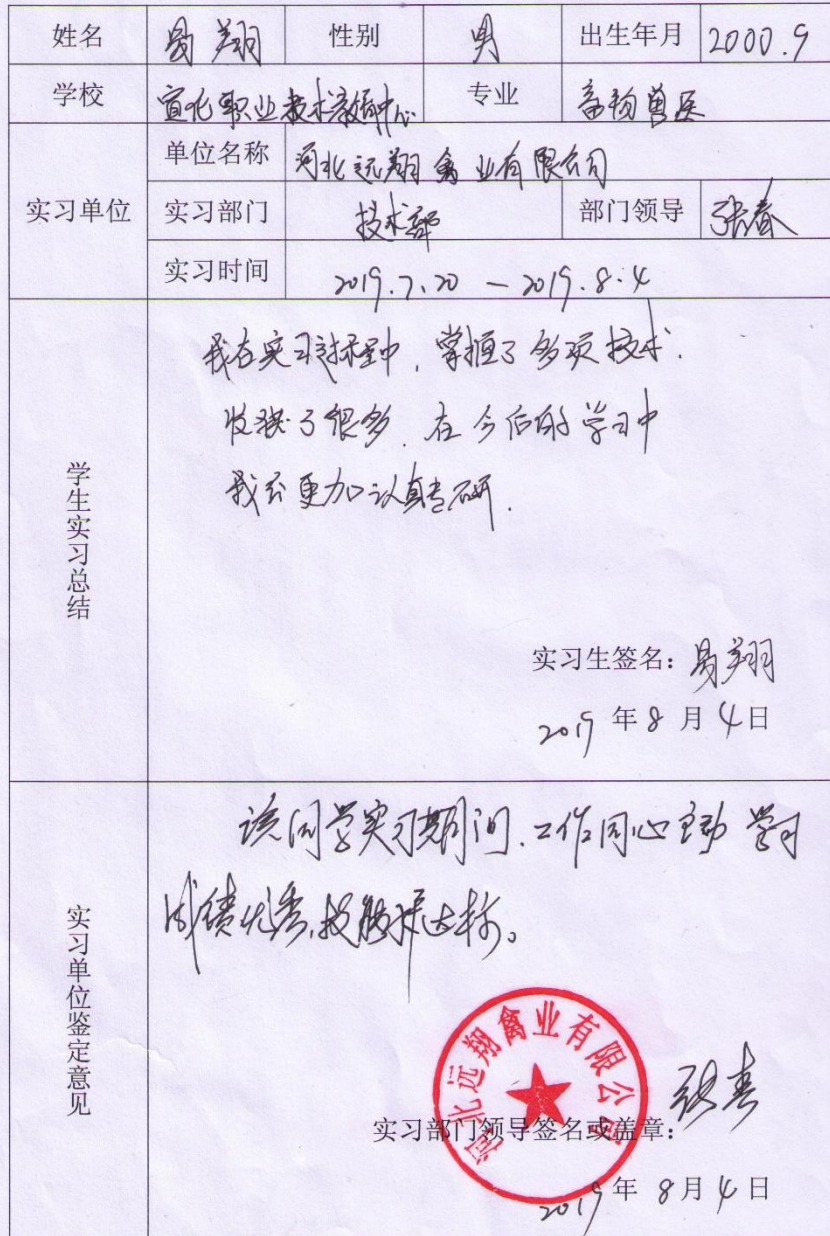 姓名 易翔 性别 男 出生年月 2000.9
学校 宣化职业技术教育中心 专业 畜牧兽医
实习单位
单位名称 河北远翔禽业有限公司
实习部门 技术部 部门领导 张春
实习时间 2019.7.20 — 2019.8.4
学生实习总结
我在实习过程中,掌握了多项技术.
收获了很多.在今后的学习中
我会更加认真专研.
实习生签名:易翔
2019年8月4日
实习单位鉴定意见
该同学实习期间.工作同心主动 学习
成绩优秀,技能达标。
河北远翔禽业有限公司
张春
实习部门领导签名或盖章:
2019年8月4日